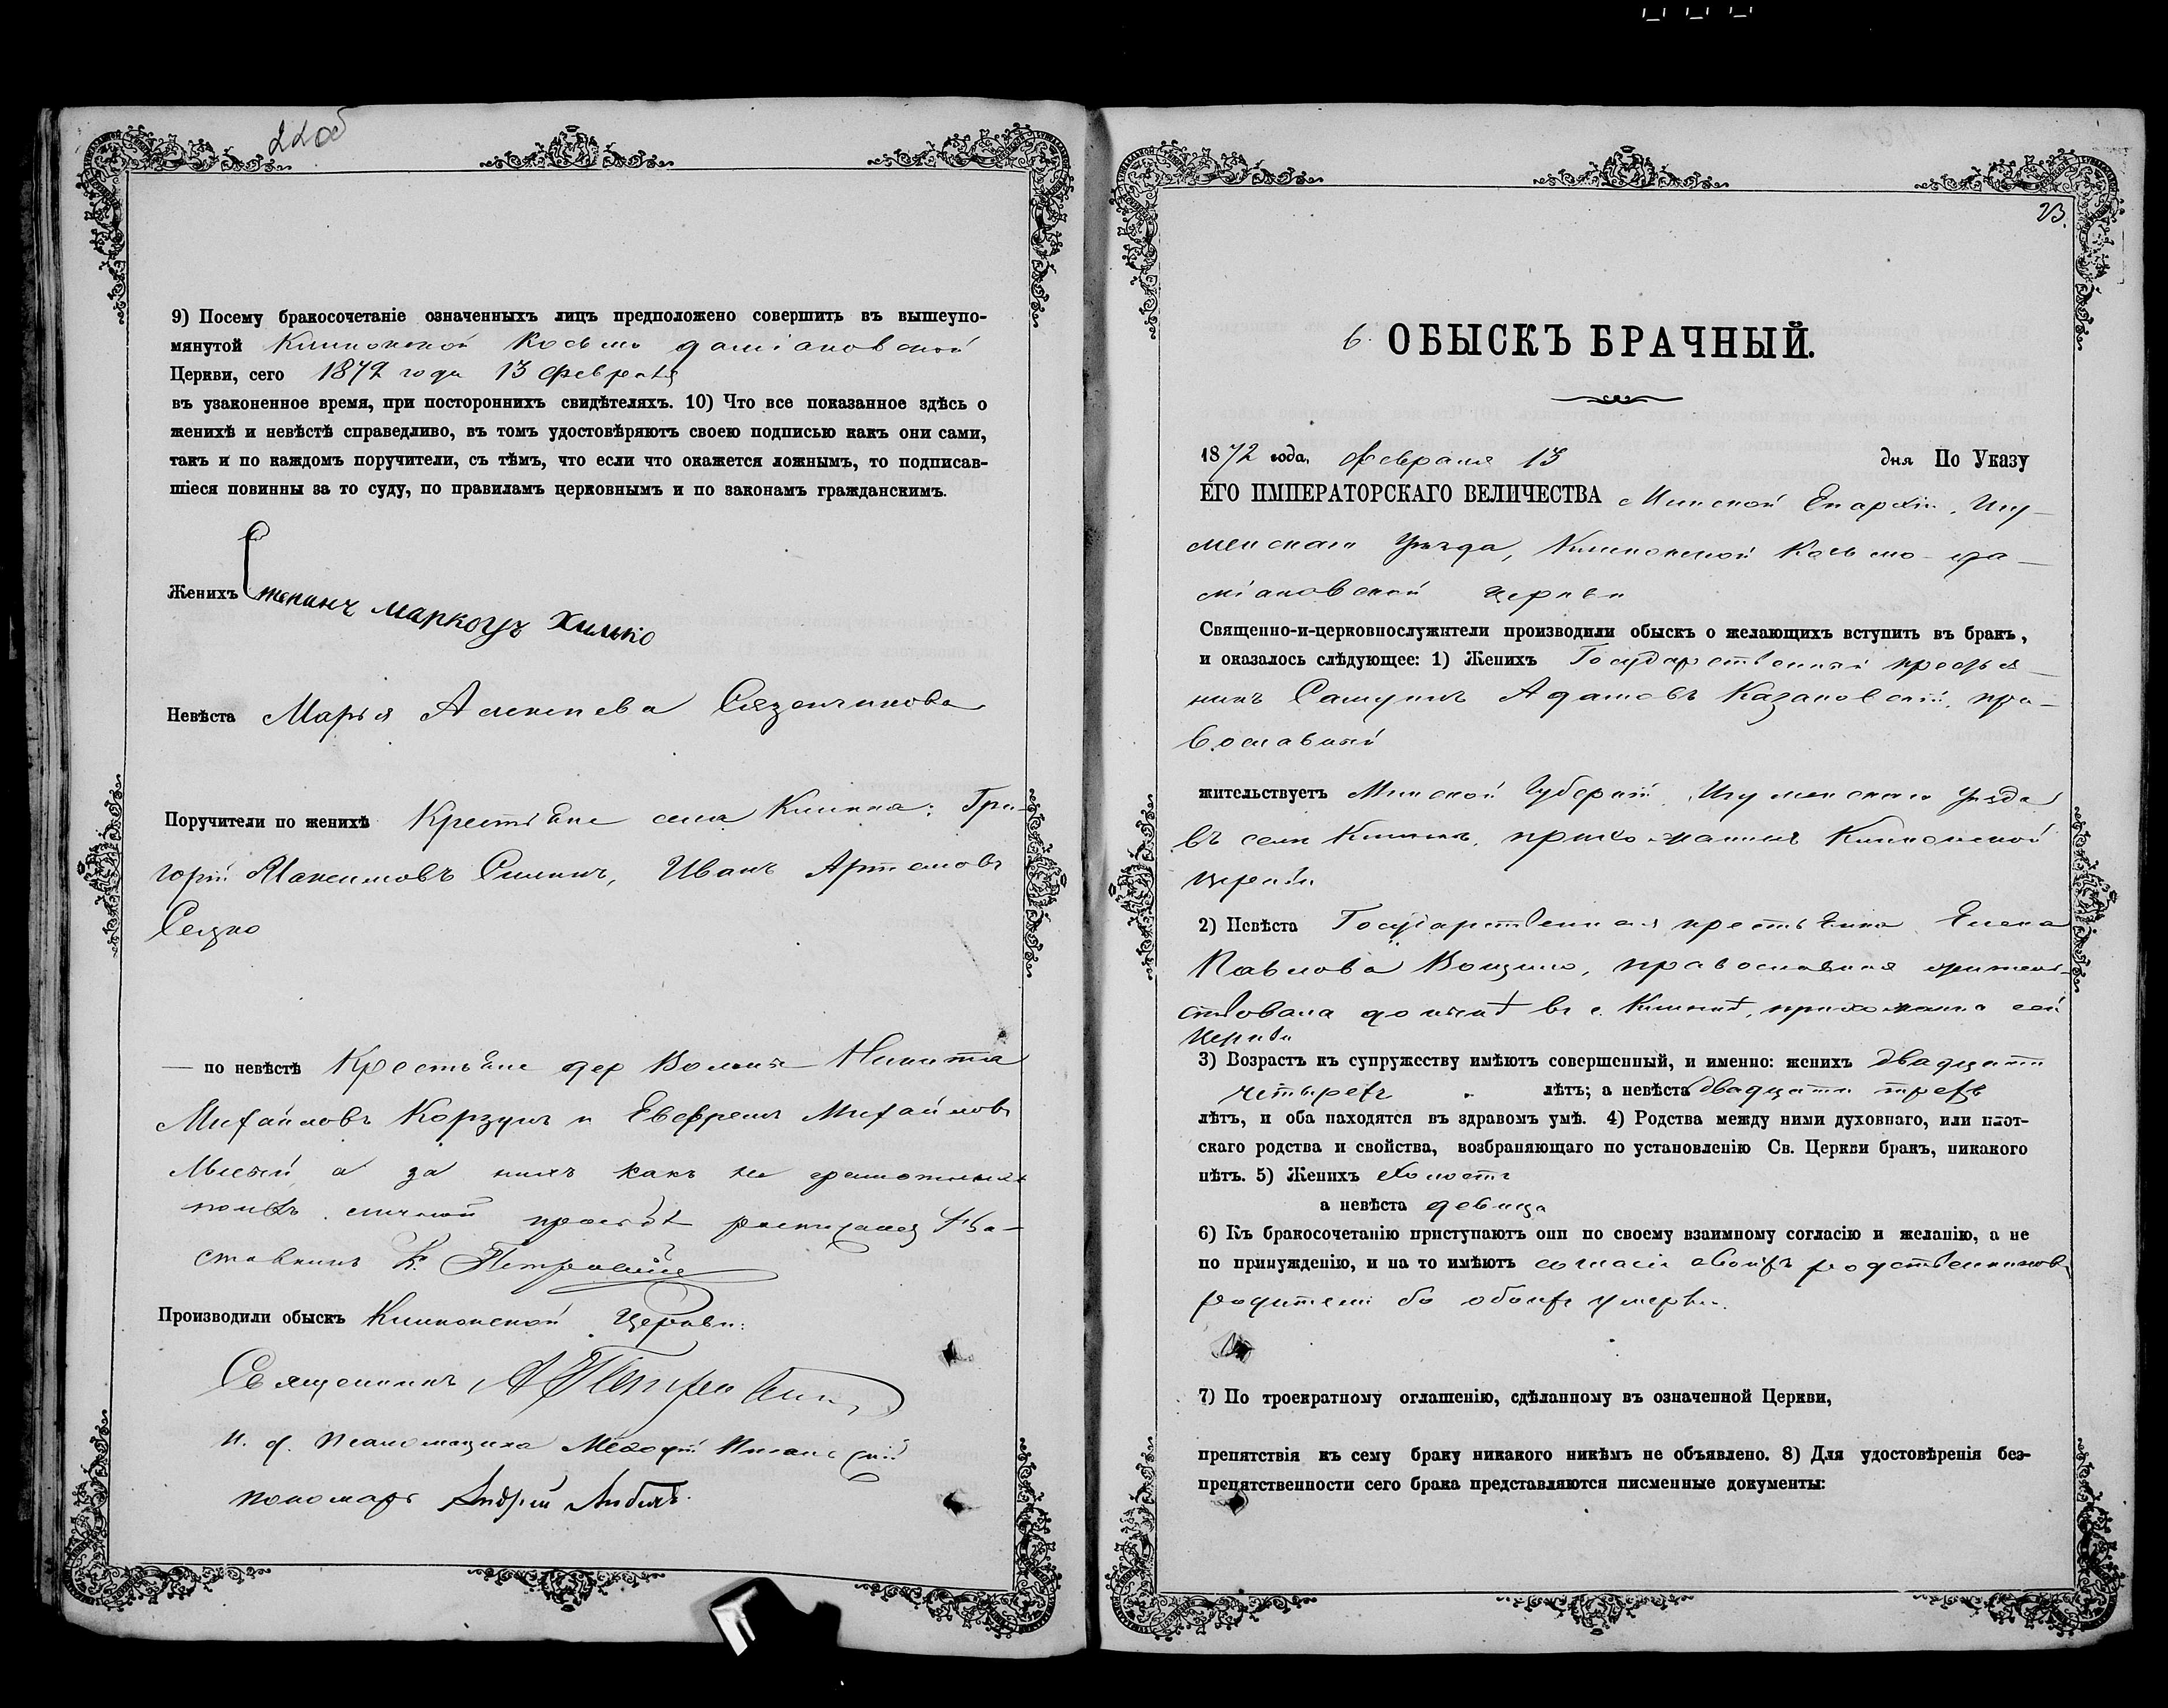 22об
9) Посему бракосочетаніе означенныхъ лицъ предположено совершить въ вышеупо-
мянутой Клинокской Косьмо Даміановской
Церкви, сего 1872 года 13 Февраля
въ узаконенное время, при постороннихъ свидѣтеляхъ. 10) Что все показанное здѣсь о
женихѣ и невѣстѣ справедливо, въ томъ удостовѣряютъ своею подписью какъ они сами,
такъ и по каждомъ поручители, съ тѣмъ, что если что окажется ложнымъ, то подписав-
шіеся повинны за то суду, по правиламъ церковнымъ и по законамъ гражданскимъ.
Женихъ Степанъ Марковъ Хилько
Невѣста Марья Алексѣева
Поручители по женихѣ Крестьяне села Клинка: Гри-
горій Максимовъ Иванъ Артемовъ
— по невѣстѣ Крестьяне дер Никита
Михайловъ Корзунъ и Евфремъ Михайловъ
а за нихъ какъ не грамотныхъ
по ихъ личной просьбѣ росписался На-
ставникъ К.
Производили обыскъ Клинокской Церкви:
Священникъ А
И. д. псаломщика Меѳодій
пономарь Андрей
23.
6. ОБЫСКЪ БРАЧНЫЙ.
1872 года, Февраля 13 дня По Указу
ЕГО ИМПЕРАТОРСКАГО ВЕЛИЧЕСТВА Минской Епархіи, Игу-
менскаго Уѣзда, Клинокской Косьмо-Да-
міановской церкви
Священно-и-церковнослужители производили обыскъ о желающихъ вступить въ бракъ,
и оказалось слѣдующее: 1) Женихъ Государственный крестья-
нинъ Самуилъ Адамовъ Казановскій, пра-
вославный
жительствуетъ Минской Губерніи, Игуменскаго уѣзда
въ селѣ Клинкѣ, прихожанинъ Клинокской
церкви
2) Невѣста Государственная крестьянка Елена
Павлова православная жительс-
ствовала до нынѣ въ с. Клинкѣ, прихожанка сей
церкви
3) Возрастъ къ супружеству имѣютъ совершенный, и именно: женихъ двадцати
четырехъ лѣтъ; а невѣста двадцати трехъ
лѣтъ, и оба находятся въ здравомъ умѣ. 4) Родства между ними духовнаго, или плот-
скаго родства и свойства, возбраняющаго по установленію Св. Церкви бракъ, никакого
нѣтъ. 5) Женихъ холостъ
а невѣста девица
6) Къ бракосочетанію приступаютъ они по своему взаимному согласію и желанію, а не
по принужденію, и на то имѣютъ согласіе своихъ родственниковъ
родители бо обоихъ умерли.
7) По троекратному оглашенію, сдѣланному въ означенной Церкви,
препятствія къ сему браку никакого никѣмъ не объявлено. 8) Для удостовѣренія без-
препятственности сего брака представляются писменные документы: